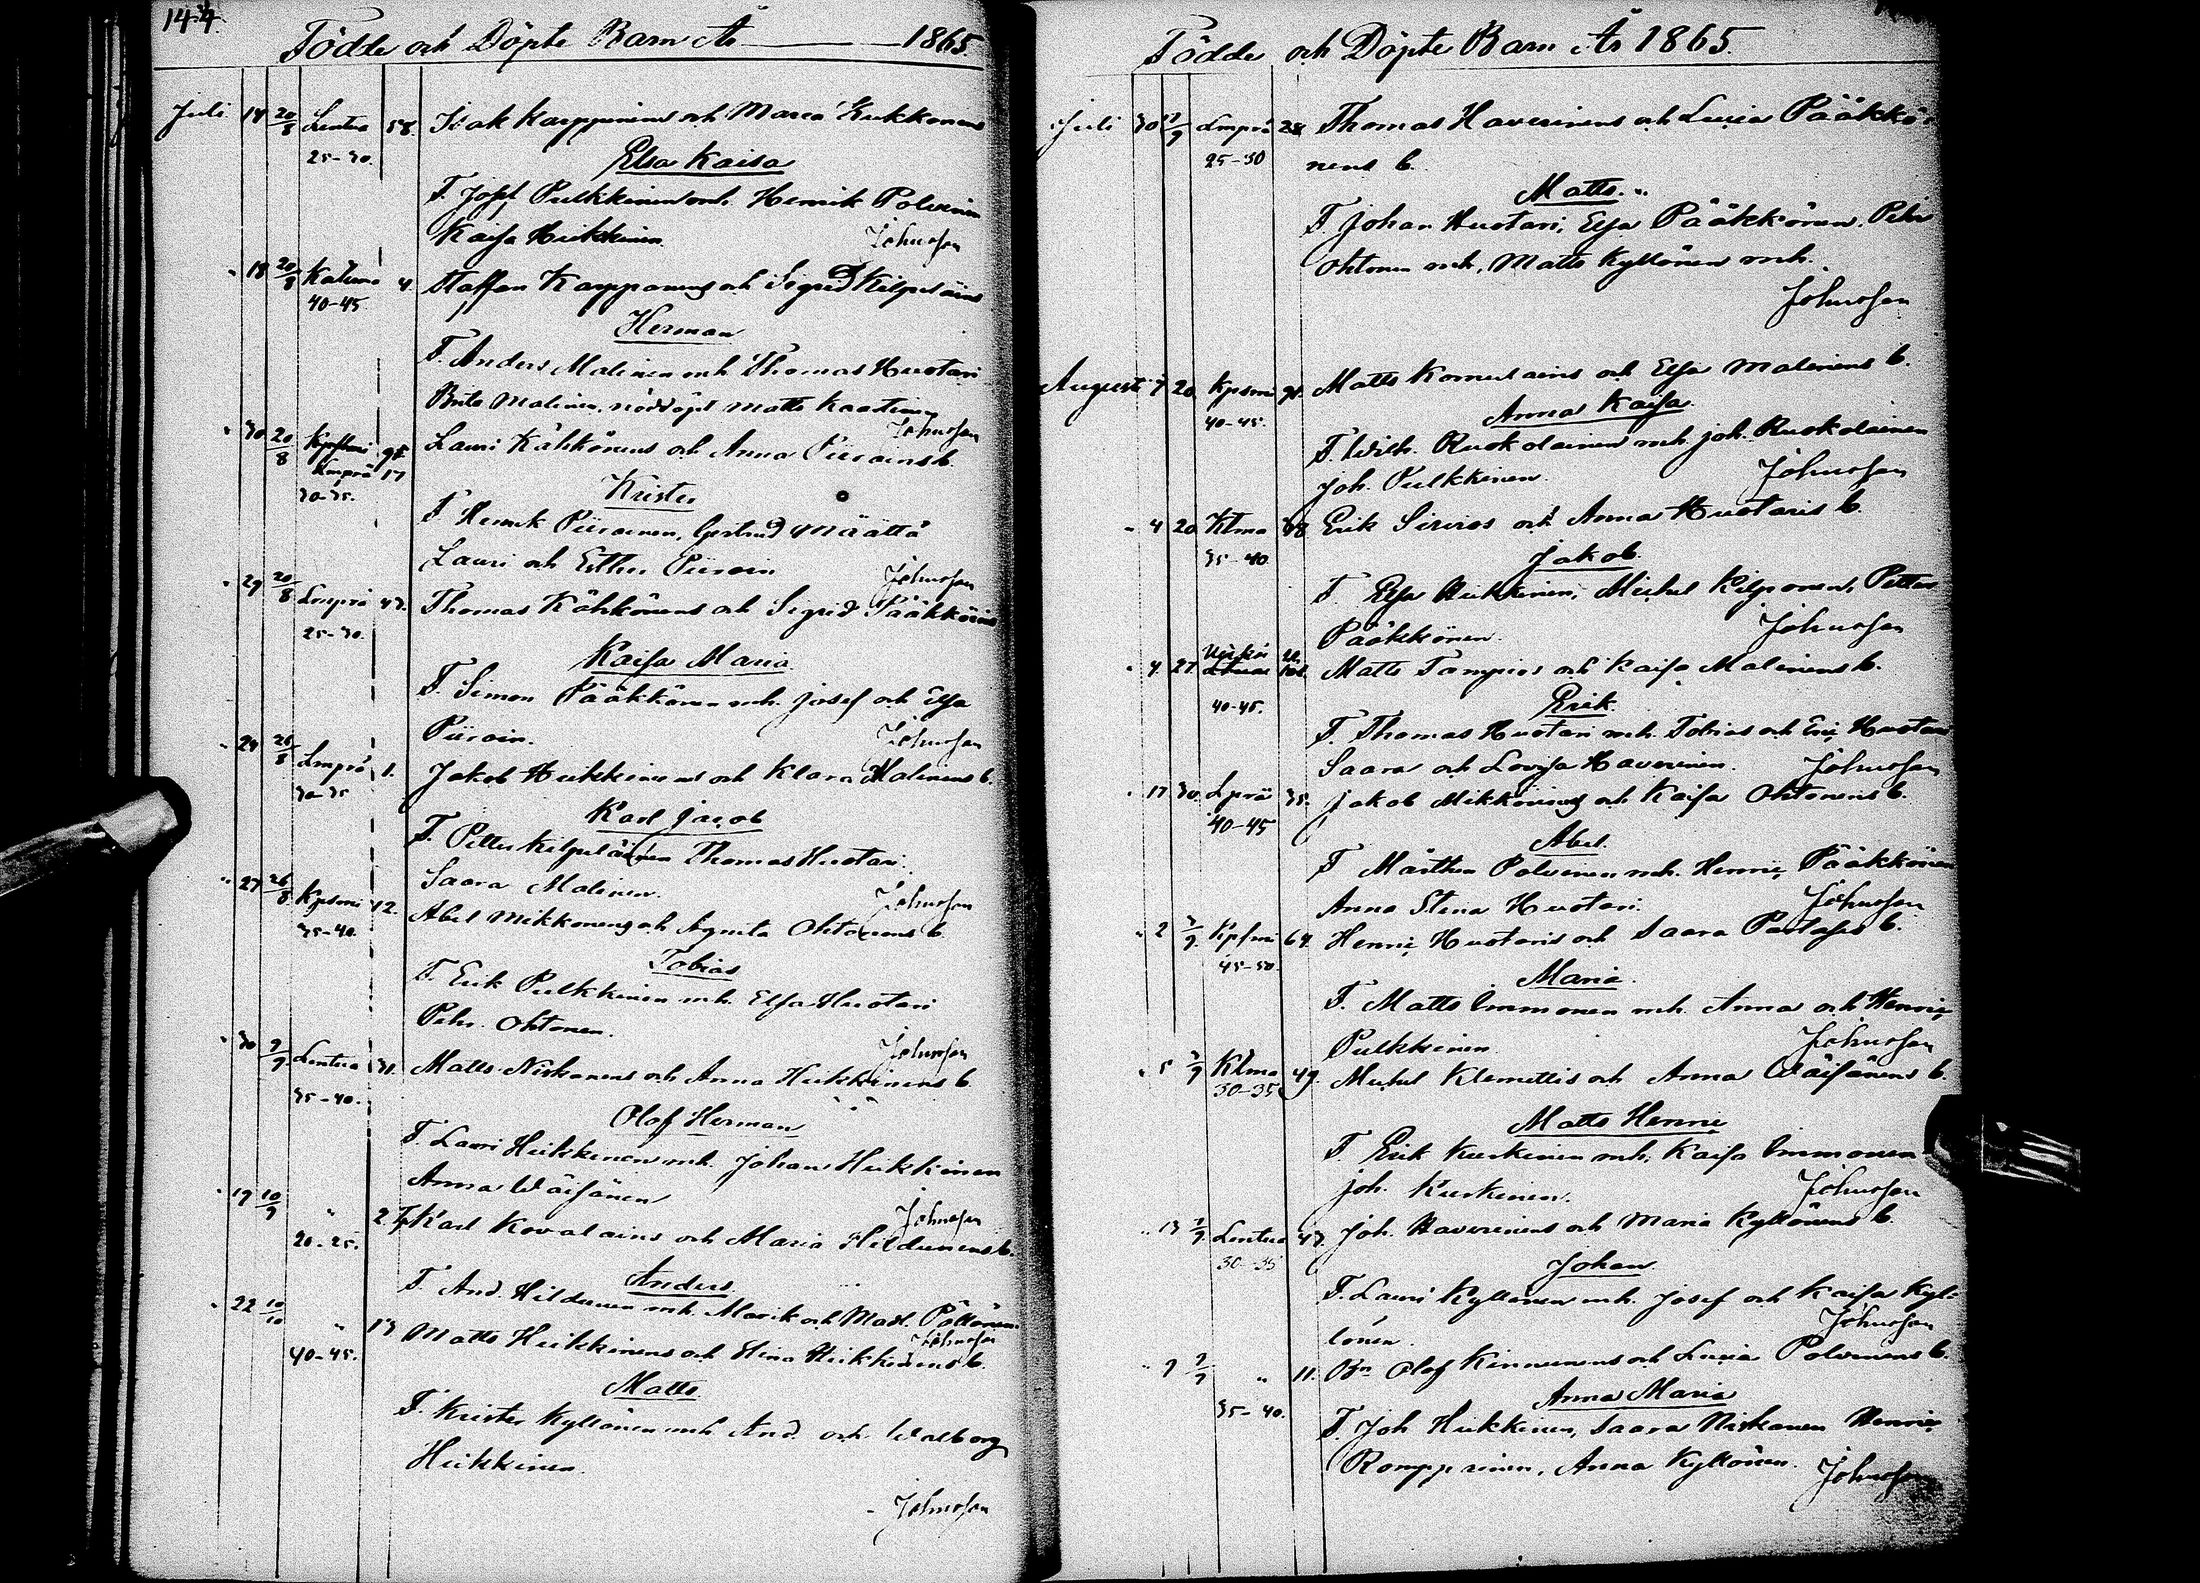 144.
Födde och Döpte Barn År 1865
Juli 14 20/8 Lentua 58. Isak Karppinens och Maria Kukkonens
25-30. Elsa Kaisa
F. Josef Pulkkinen mh. Henrik Polvinen
Kaisa Heikkinen. Johnsson
" 18 20/8 Katerma 4 Staffan Kapponens och Sigrid Kilpeläins
40-45. Herman
F. Anders Malinen mh Thomas Huotari
Brita Malinen, nöddöpt Matts Kaatinen
Johnsson
" 30 20/8 Lmprä 17 Lauri Kähkönens och Anna Piirainens b.
30-35. Krister
F Henrik Piirainen, Gertrud Määttä
Lauri och Esther Piirain Johnsson
" 29 20/8 Lmprä 47. Thomas Kähkönens och Sigrid Pääkköins
25-30. Kaisa Maria
F. Simon Pääkkönen mh. Josef och Elsa
Piirain. Johnsson
" 24 26/8 Lmprä 1. Jakob Heikkinens och Klara Malinens b.
30-35 Karl Jacob
F. Petter Kilpeläinen Thomas Huotari
Saara Malinen. Johnsson
" 27 26/8 Kpsmi 12. Abel Mikkonens och Agneta Ohtonens b.
35-40. Tobias
F. Erik Pulkkinen mh. Elsa Huotari
Pehr. Ohtonen. Johnsson
" 30 9/9 Lentua 31. Matts Niskanens och Anna Heikkinens b.
35-40. Olof Herman
F. Lauri Heikkinen mh. Johan Heikkinen
Anna Wäisänen Johnsson
" 19 10/9 " 27 Karl Kovalains och Maria Hildunens b.
20-25. Anders
F. And. Hildunen mh. och Mad. Pöllönen.
Johnsson
" 22 10/10 " 13 Matts Heikkinens och Stina Heikkinens b.
40-45. Matts
F. Krister Kyllönen mh And. och Walborg
Heikkinen.
Johnsson
Födde och Döpte Barn År 1865.
Juli 30 Lmprä 28 Thomas Haverinens och Lucia Pääkkö-
25-30 nens b.
Matts.
F. Johan Huotari, Elsa Pääkkönen. Pehr
Ohtonen mh, Matts Kyllönen mh.
Johnsson
Augusti 7 20 Kpsmi Matts Komulains och Elsa Malinens b.
40-45. Anna Kaisa.
F. Wilh. Ruokolainen mh. Joh. Ruokolainen
Joh. Pulkkinen. Johnsson
" 4 20 Ktma 38 Erik Sirviös och Anna Huotaris b.
35-40 Jakob.
F. Elsa Heikkinen, Michel Kilponen, Petter
Pääkkönen. Johnsson
" 4 27. Matts Tampios och Kaisa Malinens b.
40-45. Erik.
F. Thomas Huotari mh. Tobias och Eric Huotari
Saara och Lovisa Haverinen. Johnsson
" 17 30. Lprä 35. Jakob Mikkonens och Kaisa Ohtonens b.
40-45 Abel.
F Mårthen Polvinen mh. Henric Pääkkönen
Anna Stina Huotari. Johnsson
" 2 Kpsmi 64. Henric Huotaris och Saara b.
45-50. Maria.
F. Matts Immonen mh. Anna och Henric
Pulkkinen Johnsson
" 5 Ktma 49. Michel Klemettis och Anna Wäisänens b.
30-35 Matts Henric
F. Erik Kurkinen mh, Kaisa Immonen
Joh. Kurkinen. Johnsson
" 13 Lentua 47. Joh. Haverinens och Maria Kyllönens b.
30-35 Johan.
F. Lauri Kyllönen mh. Josef och Kaisa Kyl-
lönen. Johnsson
" 9 " 11. Olof Kinnunens och Lucia Polvinens b.
35-40. Anna Maria
F. Joh Heikkinen, Saara Niskanen Henric
Romppainen, Anna Kyllönen. Johnsson